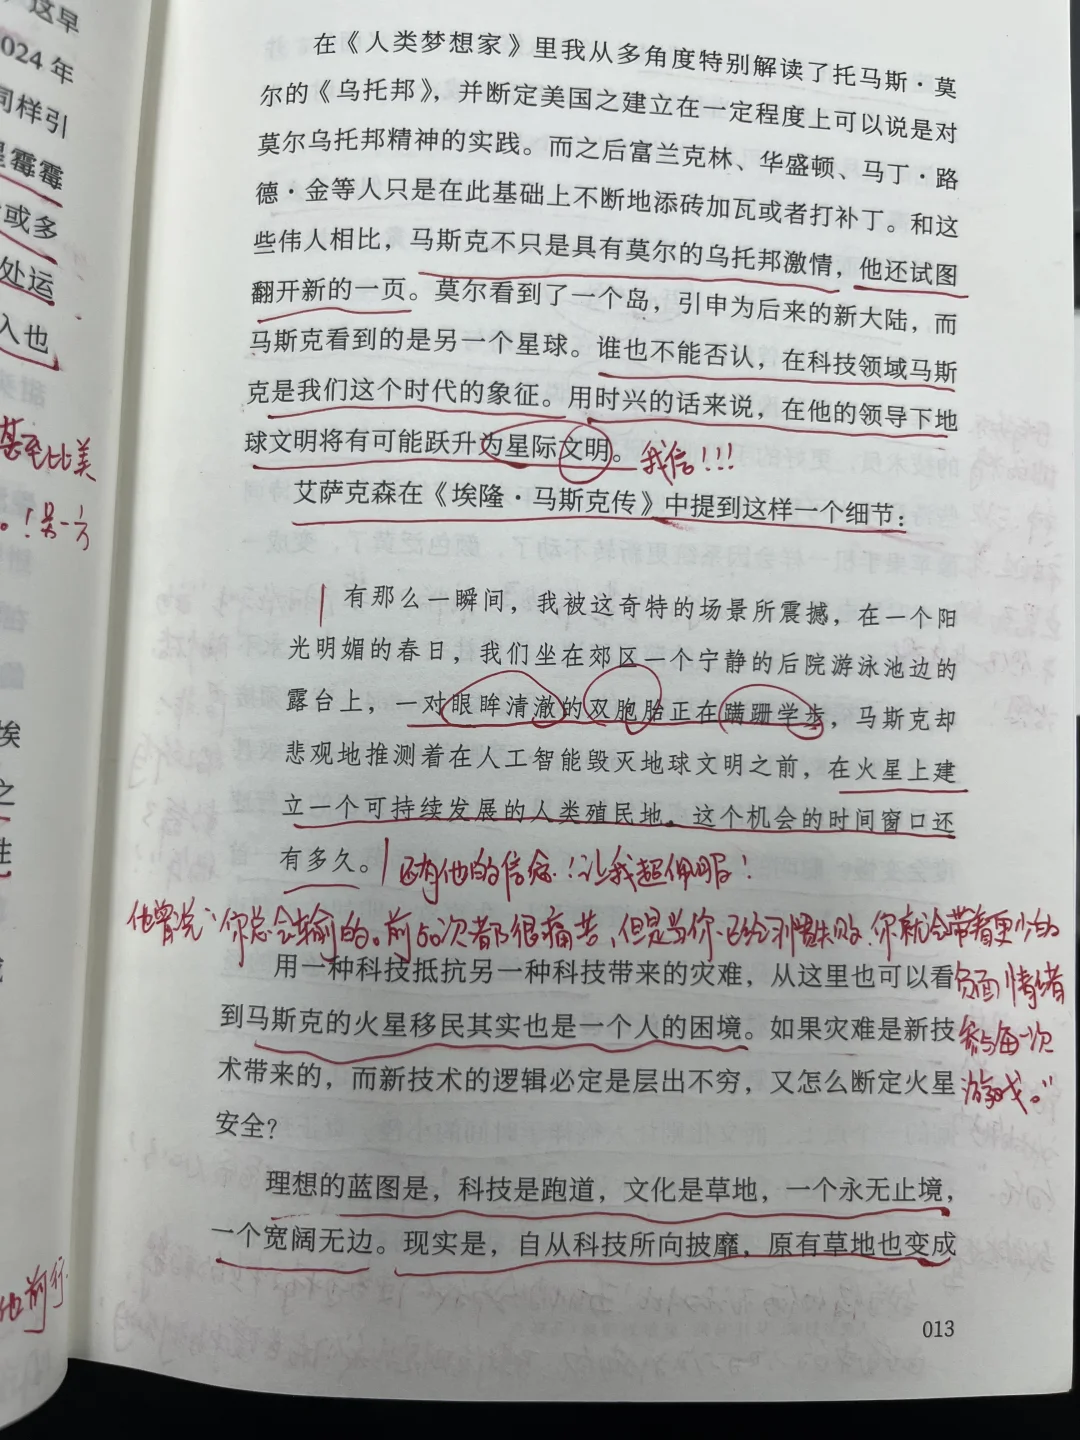 这早
024 年
同样引
霉霉
或多
处运
入也
甚至比美
。！另一方
埃
之
性
也前行
在《人类梦想家》里我从多角度特别解读了托马斯·莫
尔的《乌托邦》，并断定美国之建立在一定程度上可以说是对
莫尔乌托邦精神的实践。而之后富兰克林、华盛顿、马丁·路
德·金等人只是在此基础上不断地添砖加瓦或者打补丁。和这
些伟人相比，马斯克不只是具有莫尔的乌托邦激情，他还试图
翻开新的一页。莫尔看到了一个岛，引申为后来的新大陆，而
马斯克看到的是另一个星球。谁也不能否认，在科技领域马斯
克是我们这个时代的象征。用时兴的话来说，在他的领导下地
球文明将有可能跃升为星际文明。我信！！！
艾萨克森在《埃隆·马斯克传》中提到这样一个细节：
有那么一瞬间，我被这奇特的场景所震撼，在一个阳
光明媚的春日，我们坐在郊区一个宁静的后院游泳池边的
露台上，一对眼眸清澈的双胞胎正在蹒跚学步，马斯克却
悲观地推测着在人工智能毁灭地球文明之前，在火星上建
立一个可持续发展的人类殖民地，这个机会的时间窗口还
有多久。还有他的信念！让我超佩服！
他曾说“你总会输的。前50次都很痛苦，但是当你已经习惯失败，你就会带着更少的
负面情绪
参与每一次
游戏。”
用一种科技抵抗另一种科技带来的灾难，从这里也可以看
到马斯克的火星移民其实也是一个人的困境。如果灾难是新技
术带来的，而新技术的逻辑必定是层出不穷，又怎么断定火星
安全？
理想的蓝图是，科技是跑道，文化是草地，一个永无止境，
一个宽阔无边。现实是，自从科技所向披靡，原有草地也变成
013